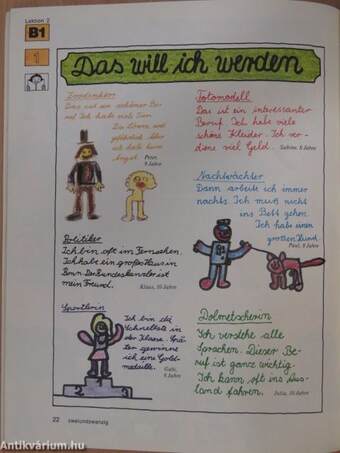 Lektion 2
B1
1
Das will ich werden
Zoodirektor
Das ist ein schöner Be-
ruf. Ich habe viele Tiere.
Die Löwen sind
gefährlich. Aber
ich habe keine
Angst.
Peter,
9 Jahre
Fotomodell
Das ist ein interessanter
Beruf. Ich habe viele
schöne Kleider. Ich ver-
diene viel Geld.
Sabine, 8 Jahre
Nachtwächter
Dann arbeite ich immer
nachts. Ich muß nicht
ins Bett gehen.
Ich habe einen
großen Hund.
Paul, 9 Jahre
Politiker
Ich bin oft im Fernsehen.
Ich habe ein großes Haus in
Bonn. Der Bundeskanzler ist
mein Freund.
Klaus, 10 Jahre
Sportlerin
Ich bin die
Schnellste in
der Klasse. Spä-
ter gewinne
ich eine Gold-
medaille.
Gabi,
9 Jahre
Dolmetscherin
Ich verstehe alle
Sprachen. Dieser Be-
ruf ist ganz wichtig.
Ich kann oft ins Aus-
land fahren.
Julia, 10 Jahre
2 1 3
22
zweiundzwanzig
Antikvárium.hu